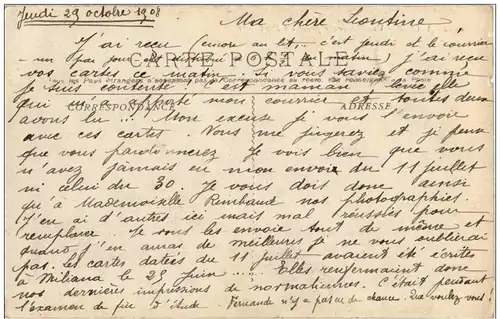 Jeudi 29 octobre 1908
Ma chère Léontine
J'ai reçu (encore au lit, c'est jeudi et le courrier
un pas jour matin) j'ai reçu
CARTE POSTALE
vos cartes ce matin. Si vous saviez comme
je suis contente c'est maman levée elle
CORRESPONDANCE ADRESSE
qui m'a apporté mon courrier et toutes deux
avons lu ... Mon excuse je vous l'envoie
avec ces cartes. Vous me jugerez et je pense
que vous pardonnerez Je vois bien que vous
n'avez jamais eu mon envoi du 11 juillet
ni celui du 30. Je vous dois donc ainsi
qu'à Mademoiselle Rimbaud nos photographies.
J'en ai d'autres ici mais mal réussies pour
remplacer. Je vous les envoie tout de même et
quand j'en aurai de meilleures je ne vous oublierai
pas. Les cartes datées du 11 juillet avaient été écrites
à Miliana le 25 juin ... Elles renfermaient donc
nos dernières impressions de normaliennes. C'était pendant
l'examen de fin d'étude Fernande n'a pas eu de chance. Que voulez vous !